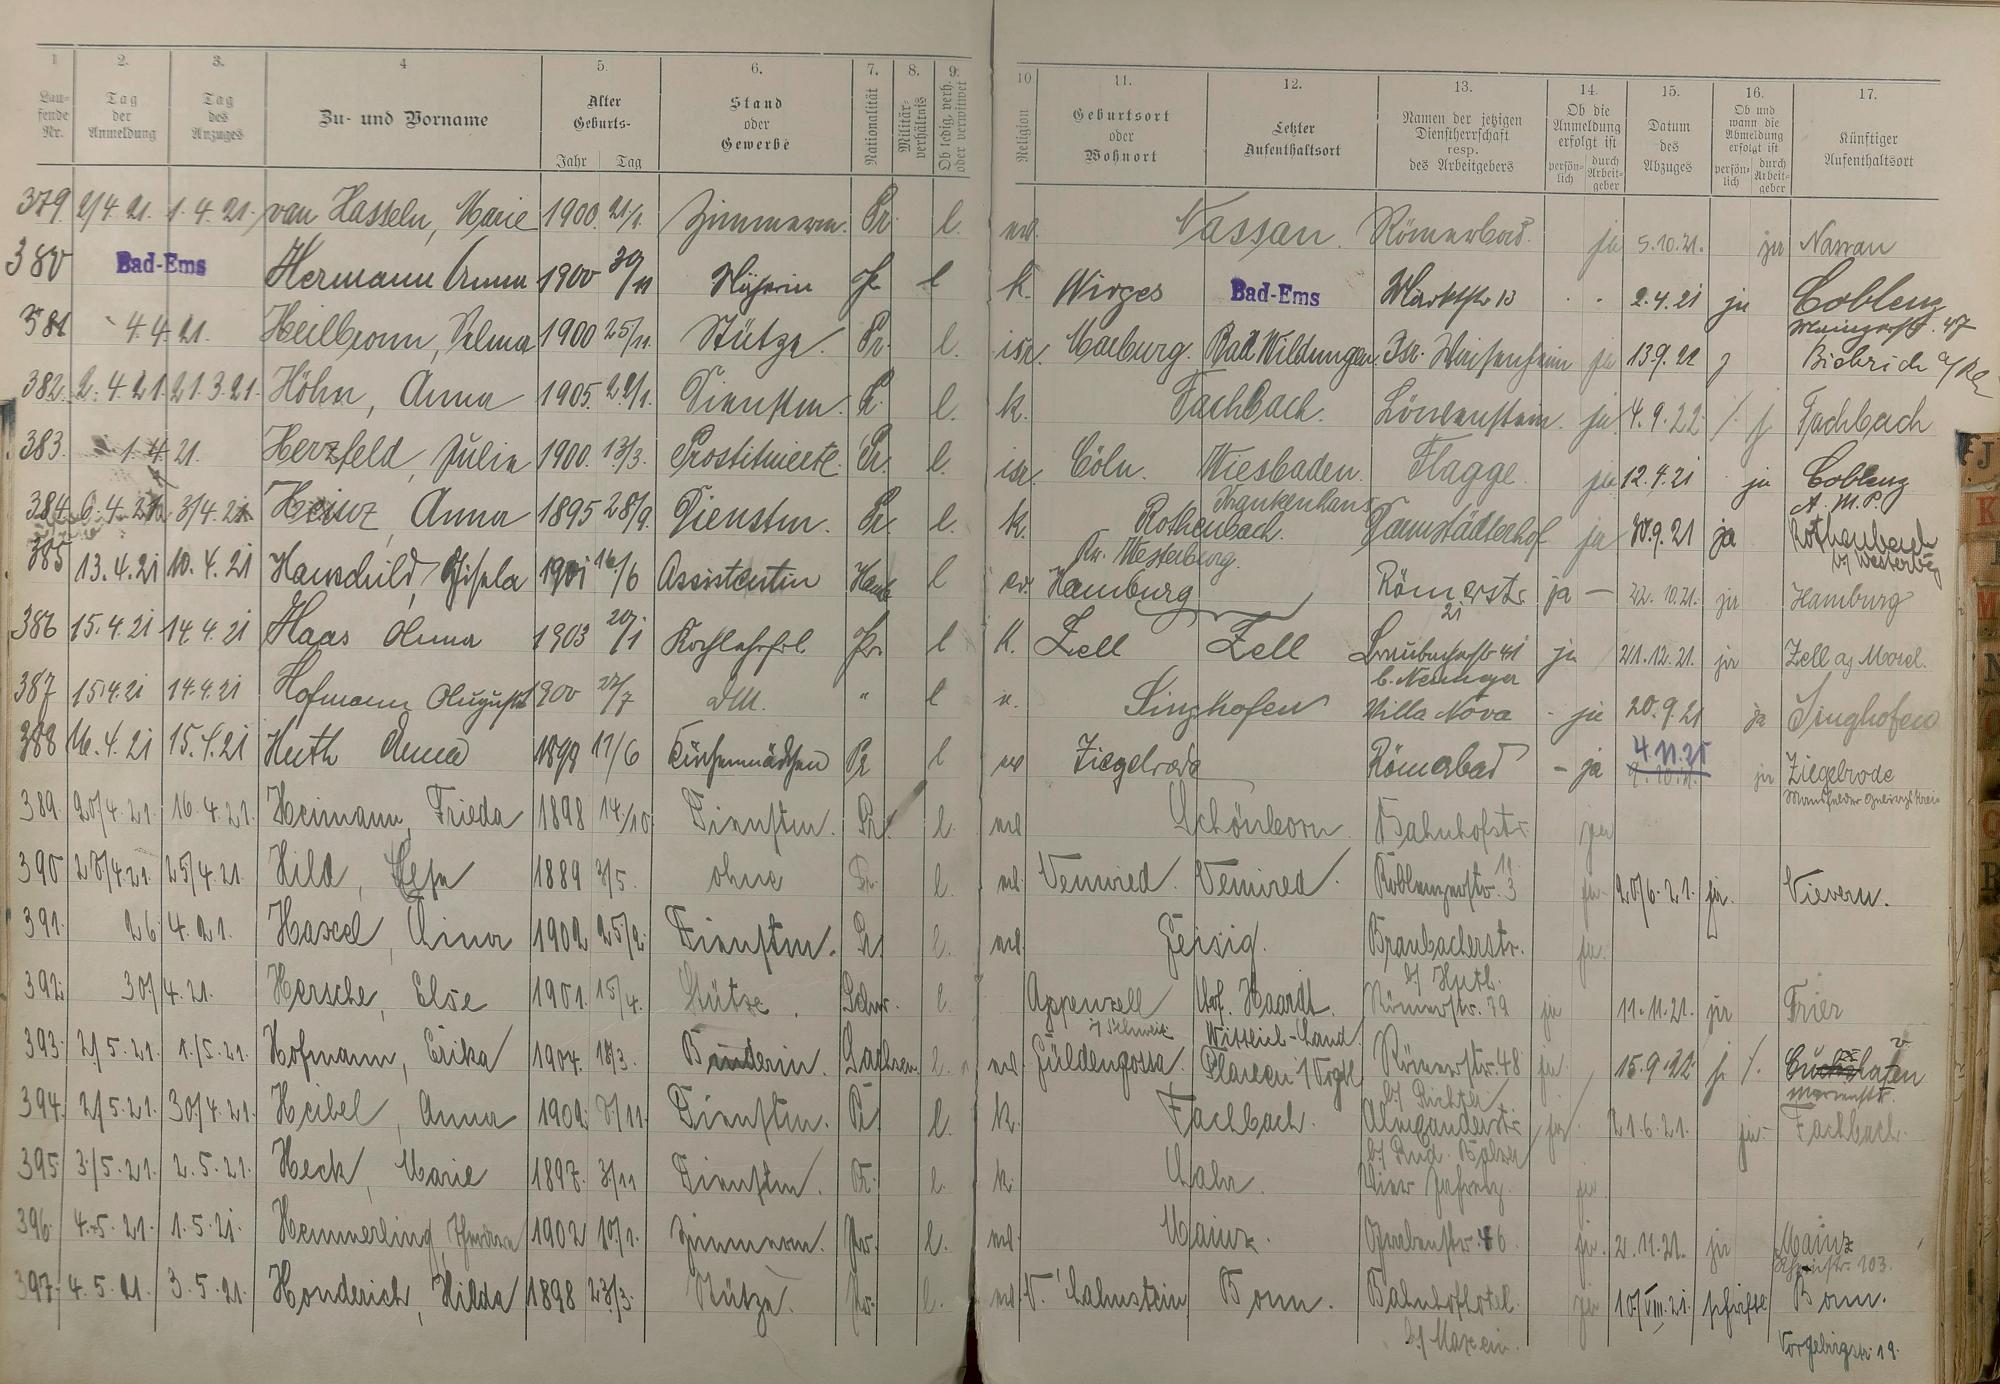 1 2. 3. 4 5. 6. 7. 8. 9. 10 11. 12. 13. 14. 15. 16. 17.
Laufende Nr. Tag der Anmeldung Tag des Anzuges Zu- und Vorname Alter Geburts- Jahr Tag Stand oder Gewerbe Nationalität Militärverhältnis Ob ledig, verh. oder verwitwet Religion Geburtsort oder Wohnort Letzter Aufenthaltsort Namen der jetzigen Dienstherrschaft resp. des Arbeitgebers Ob die Anmeldung erfolgt ist persönlich durch Arbeitgeber Datum des Abzuges Ob und wann die Abmeldung erfolgt ist persönlich durch Arbeitgeber Künftiger Aufenthaltsort
379. 2/4 21. 1. 4. 21. van Hasseln, Marie 1900. 21/1. Zimmerm. Pr. l. ev. Nassau. Römerbad. ja 5.10.21. ja Nassau
380 Bad-Ems Hermann Anna 1900 30/11 Näherin Pr l k. Wirges Bad-Ems Marktstr 13 2.4.21 ja Coblenz
381 4.4.21. Heilbronn, Selma 1900 25/11. Stütze. Pr. l. isr. Marburg. Bad Wildungen Isr. Waisenheim ja 13.9.21 j Biebrich a/Rh
382. 2.4.21. 21.3.21. Höhn, Anna 1905. Dienstm. Pr. l. k. Fachbach. Löwenstein. ja 4.9.22 /. j Fachbach
383. 1.4.21. Herzfeld, Julie 1900. 13/3. Prostituierte. Pr. l. isr. Cöln. Wiesbaden. Flagge. ja 12.4.21 ja Coblenz
Krankenhaus A. M. P.
384. 6.4.21. 3/4.21 Heinz, Anna 1895 28/9. Dienstm. Pr. l. k. Rothenbach. Darmstädterhof ja 30.9.21 ja Rothenbach
Kr. Westerburg. b/ Westerbg
385 13.4.21 10.4.21 Hauschild, Gisela 1901 16/6 Assistentin Hamb l ev. Hamburg Römerstr. 21 ja — 22.10.21. ja Hamburg
386 15.4.21 14.4.21 Haas Anna 1903 20/1 Kochlehrfrl. Pr. l k. Zell Zell 41 ja 21.12.21. ja Zell a/ Mosel.
387 15.4.21 14.4.21 Hofmann August 1900 27/7 DM. " l Singhofen Villa Nova - ja 20.9.21 ja Singhofen
388 16.4.21 15.4.21 Huth Anna 1898 17/6 Küchenmädchen Pr l ev Ziegelrode Römerbad - ja 4.11.21 ja Ziegelrode
389. 20/4.21. 16.4.21. Heimann, Frieda 1898 14./10. Dienstm. Pr. l. ev. Schönborn. Bahnhofstr. ja
390 25/4.21 Hild, 1889 3/5. ohne Pr. l. ev. Koblenzerstr. ja 20/6.21. ja. Nievern.
391. 26 4.21. Hasel, Lina 1902 25/2. Dienstm. Pr l. ev. Geisig. Braubacherstr. ja.
b/ Huth.
392. 30/4.21. Hersche, Else 1901. 15/4. Stütze. Schw. l. Appenzell Hof. Haardt. Römerstr. 79 ja 11.11.21. ja Trier
i/ Schweiz Wittlich-Land.
393. 2/5.21. 1./5.21. Hofmann, Erika 1904. 18/3. Sachsen l. ev. Güldengossa. Plauen i/Vogtl Römerstr. 48 ja 15.9.22 j /.
b/ Richter
394. 2/5.21. 30/4.21. Heibel, Anna 1902. Dienstm. Pr. l. k. Fachbach. Alexanderstr. ja 21.6.21. ja. Fachbach.
395 3./5.21. 2.5.21. Heck, Marie 1897. 3/11 Dienstm. Pr. l. k. Lahr. ja.
396. 4.5.21. 1.5.21. Hemmerling, 1902 10/1. Zimmerm. Pr. l. ev. Mainz. Grabenstr. 46 ja. 2.11.21. ja Mainz
397. 4.5.21. 3.5.21. Honderich, Hilda 1898 23/3. Stütze. Pr. l. ev. N. Lahnstein Bonn. Bahnhofhotel. ja 10/VIII.21. schriftl Bonn.
b/ Maxein. Vorgebirgstr. 19.